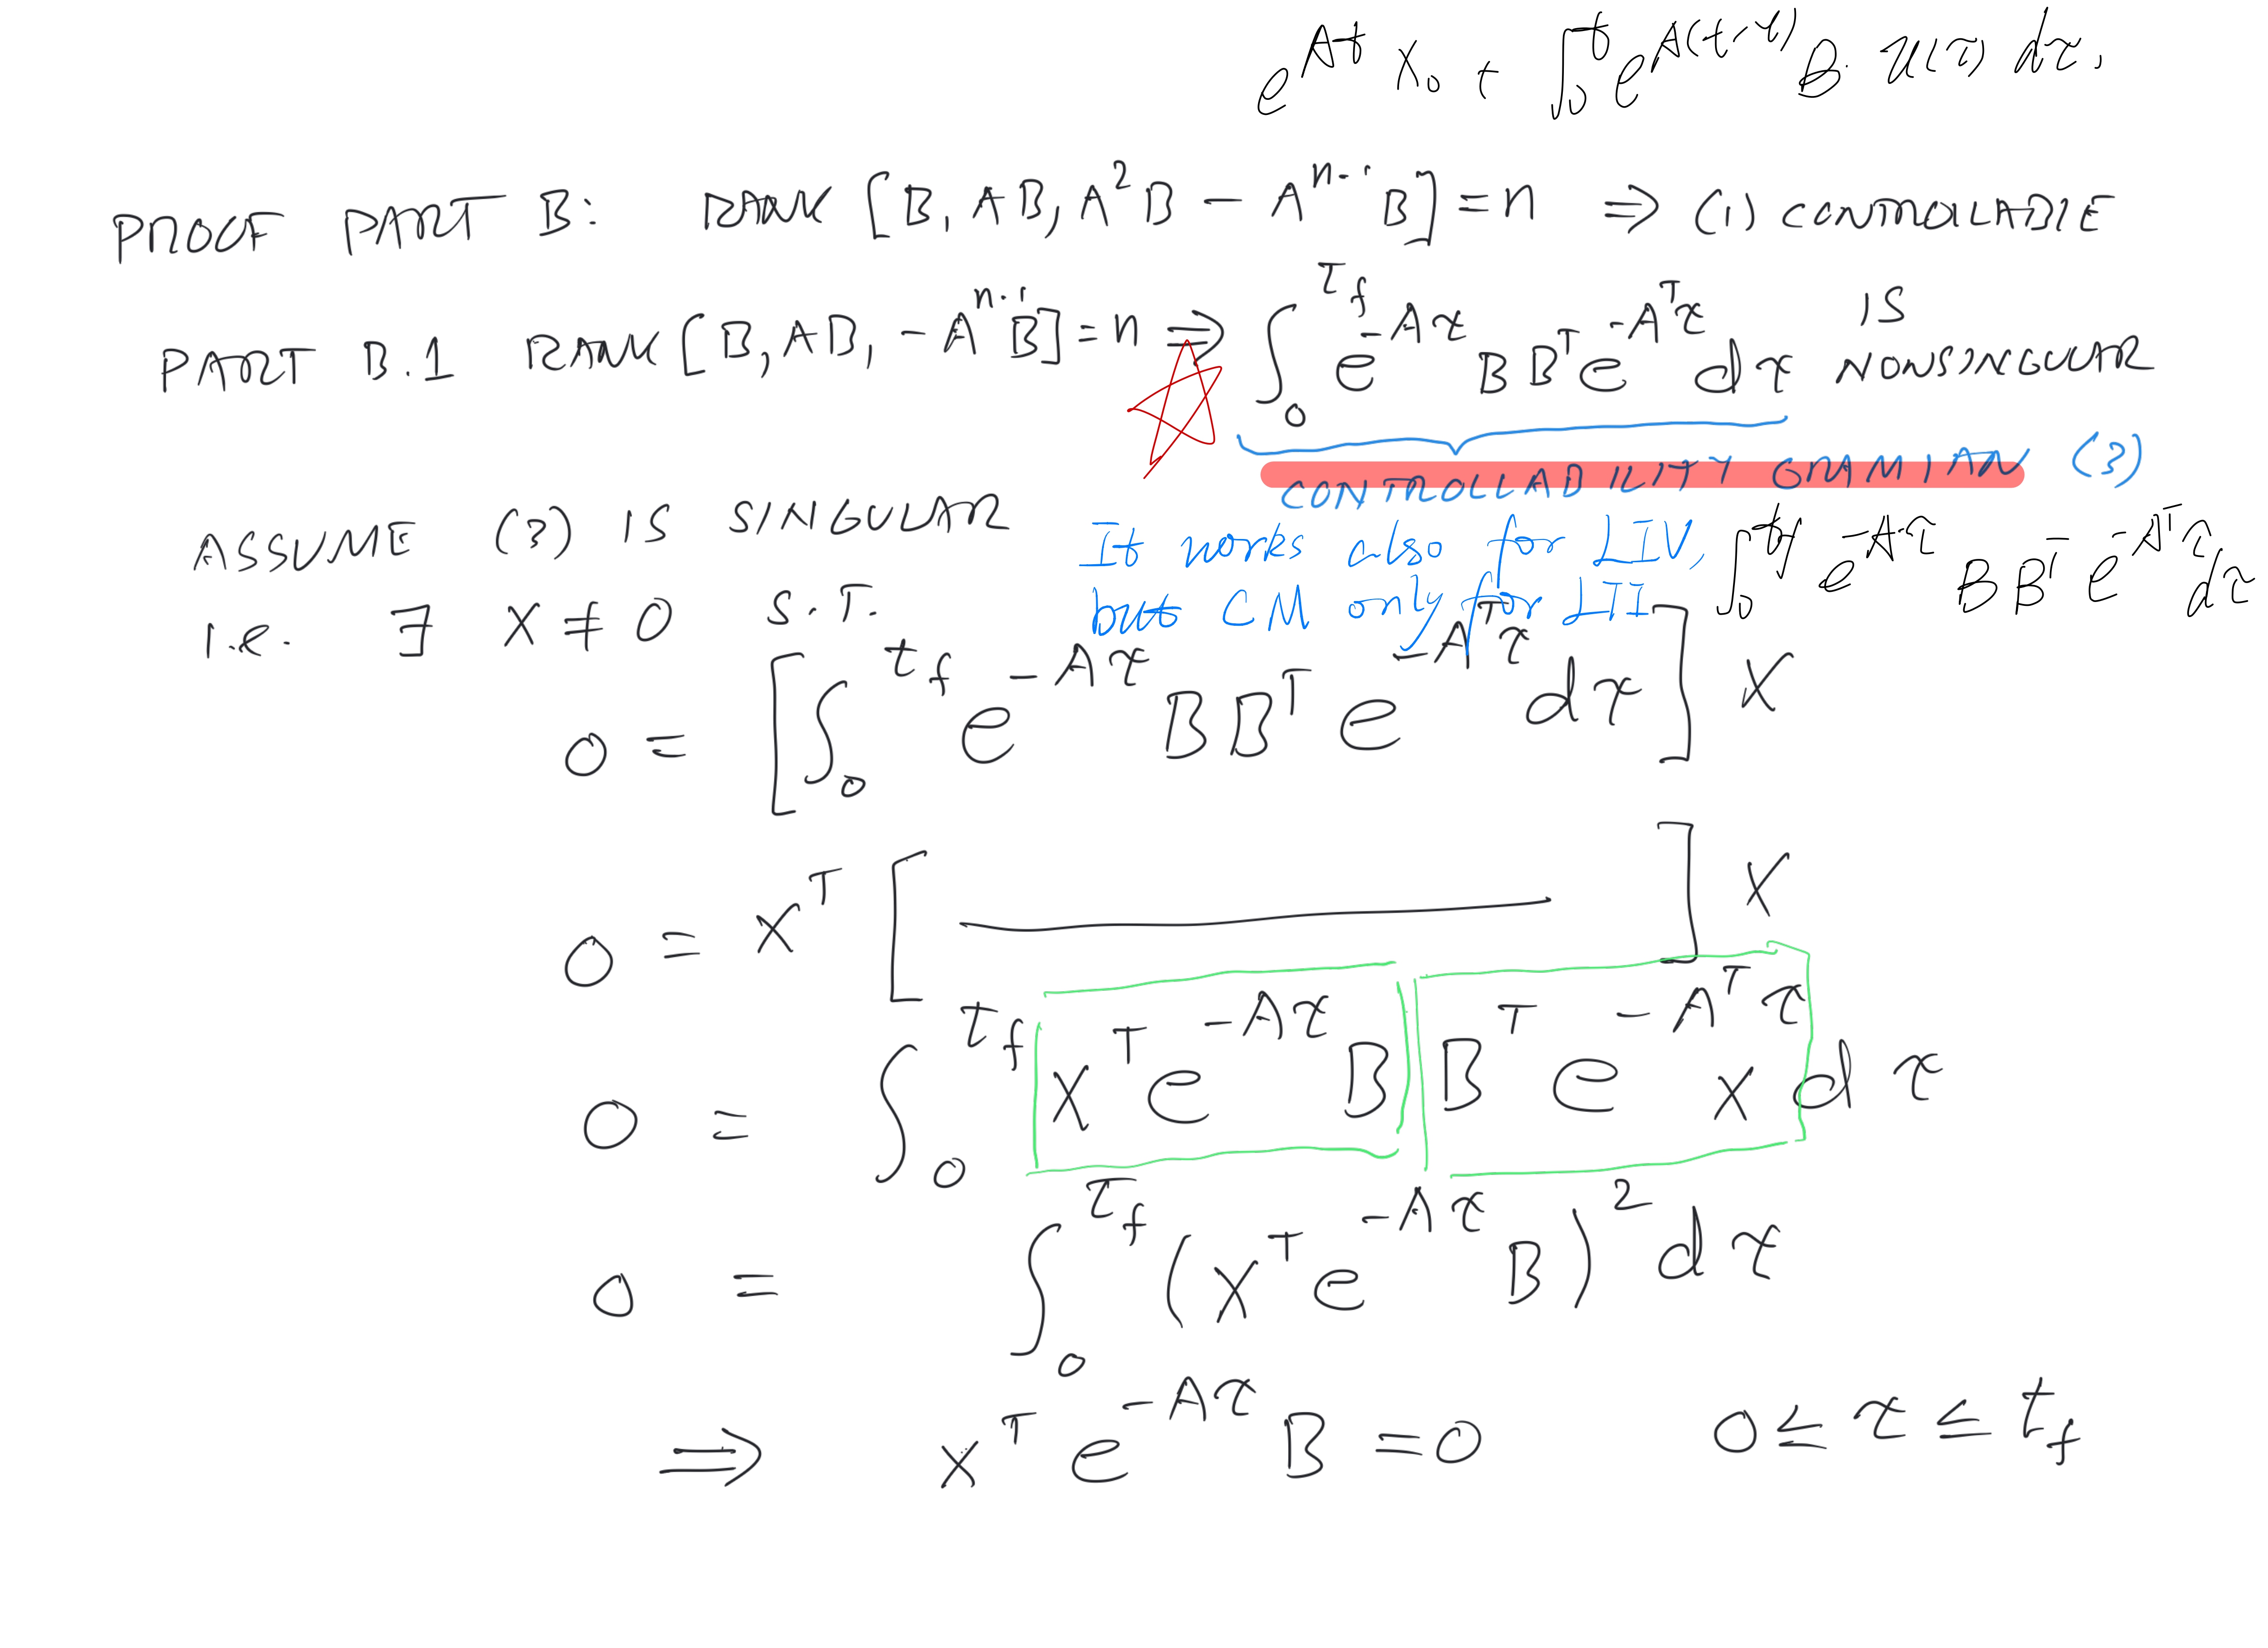 e^{At} x_0 + ∫_0^t e^{A(t-τ)} B u(τ) dτ,
PROOF PART B: RANK [B, AB, A^2B - A^{n-1}B] = n ⇒ (1) CONTROLLABLE
PART B.1 RANK [B, AB, - A^{n-1}B] = n ⇒ ∫_0^{t_f} e^{-Aτ} B B^T e^{-A^Tτ} dτ IS NONSINGULAR
CONTROLLABILITY GRAMIAN (3)
ASSUME (3) IS SINGULAR
It works also for LIV,
but CM only for LII
∫_0^{t_f} e^{-Aτ} B B^T e^{-A^Tτ} dτ
i.e. ∃ x ≠ 0 S.T.
0 = [∫_0^{t_f} e^{-Aτ} B B^T e^{-A^Tτ} dτ] x
0 = x^T [ ——— ] x
0 = ∫_0^{t_f} x^T e^{-Aτ} B B^T e^{-A^Tτ} x dτ
0 = ∫_0^{t_f} (x^T e^{-Aτ} B)^2 dτ
⇒ x^T e^{-Aτ} B = 0 0 ≤ τ ≤ t_f